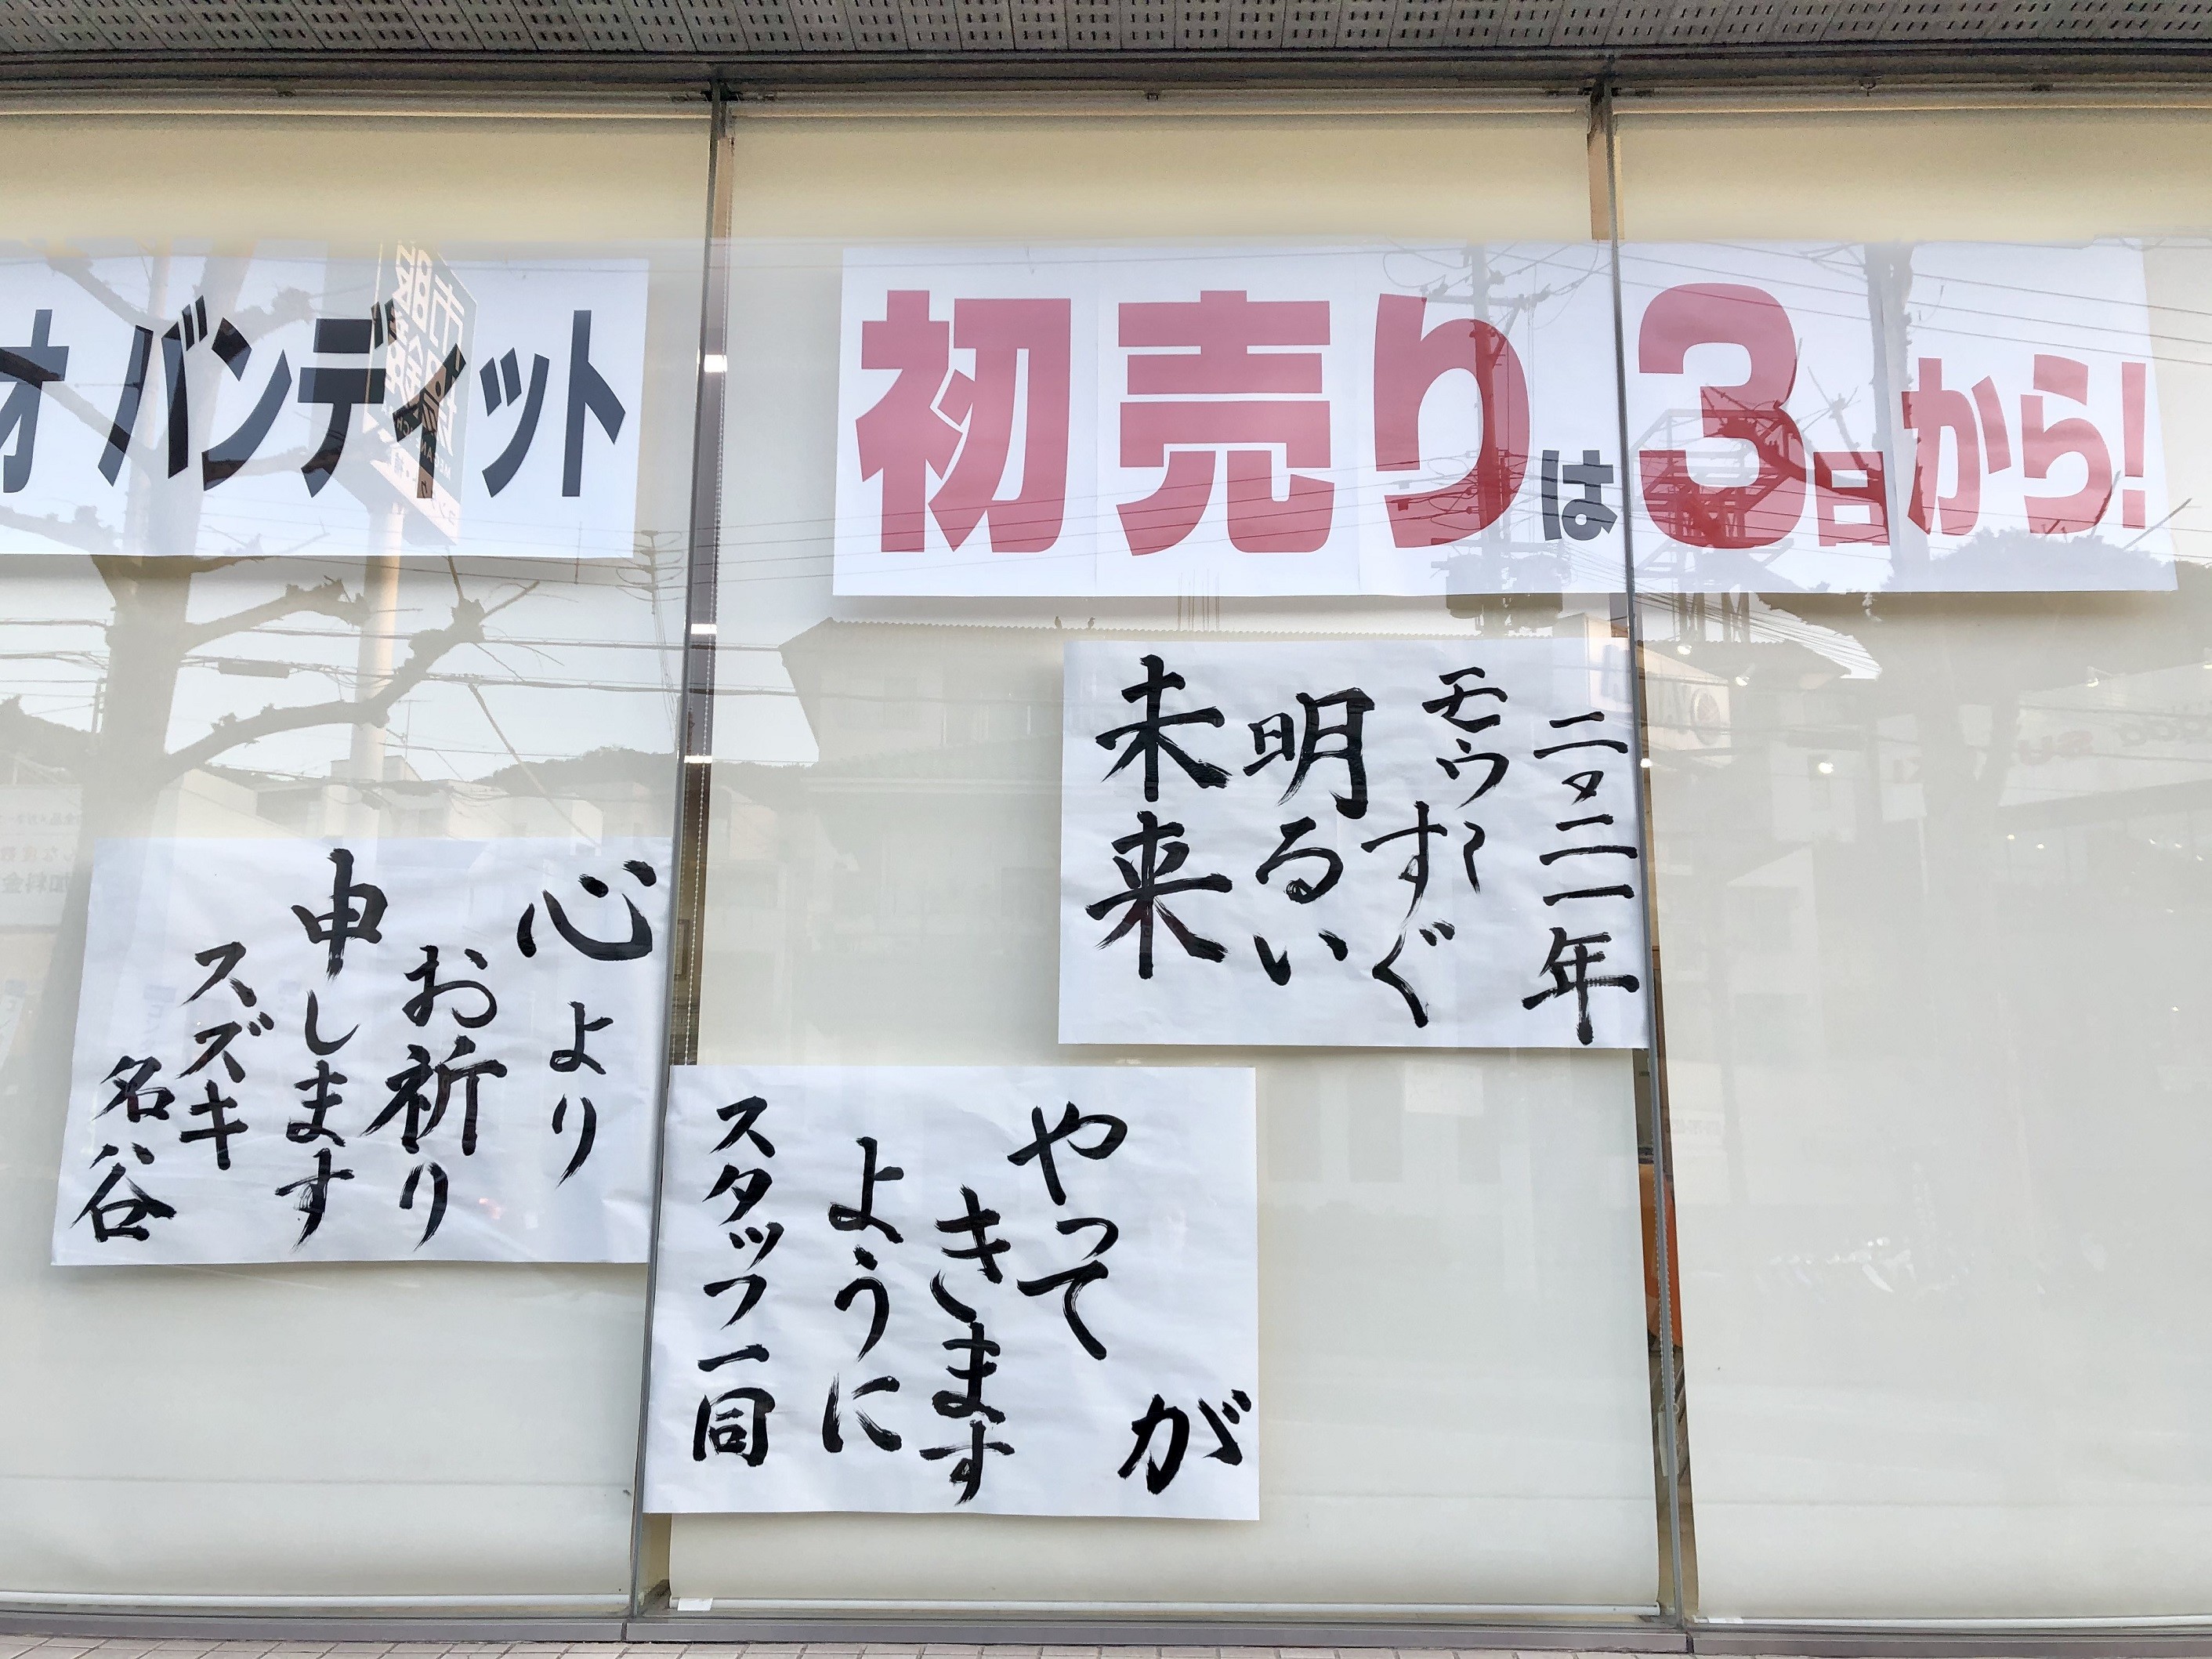 オ バンディット
初売りは3日から!
二〇二一年
モウ〜すぐ
明るい
未来
が
やって
きます
ように
スタッフ一同
心より
お祈り
申します
スズキ
名谷